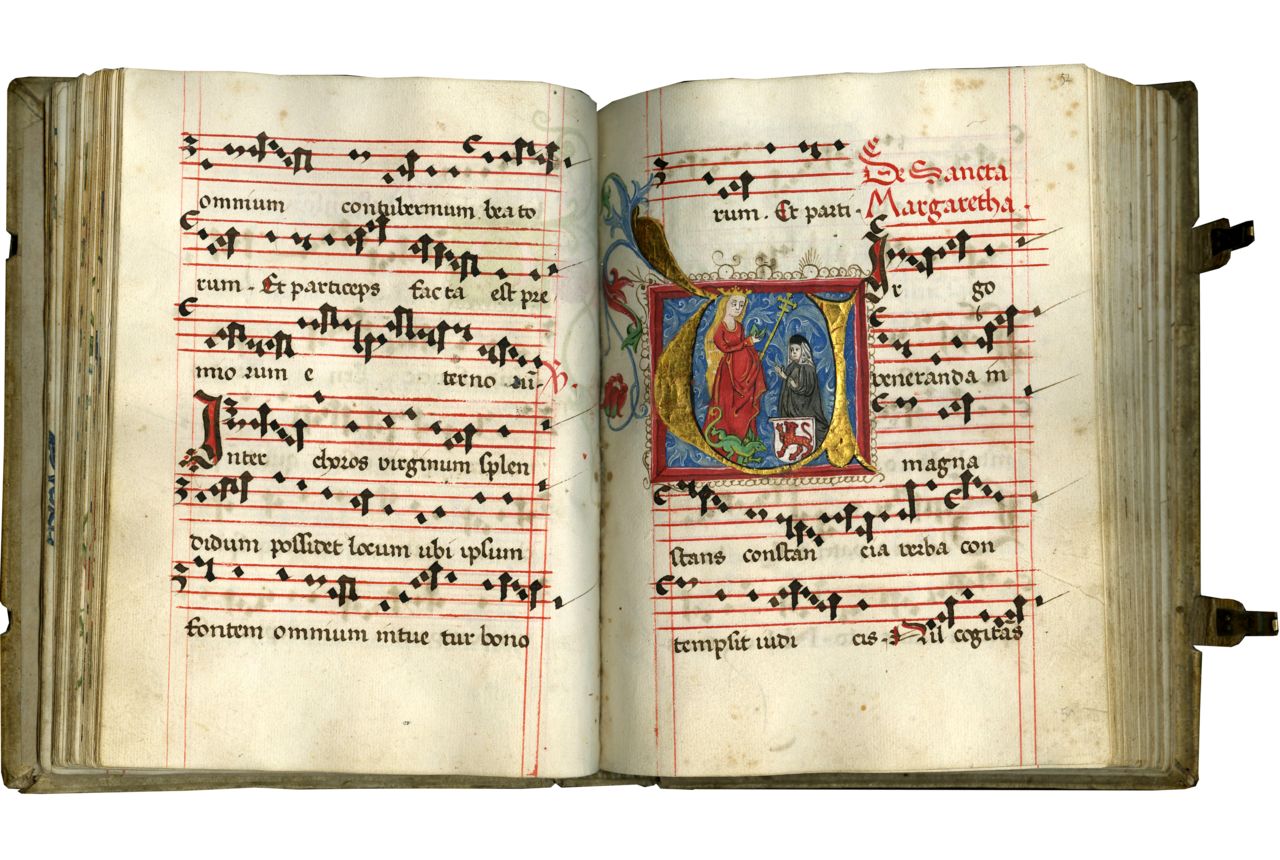 omnium contubernium beato
rum . Et particeps facta est pre
mio rum e terno rū . V.
Inter choros virginum splen
didum possidet locum ubi ipsum
fontem omnium intue tur bono
52
rum . Et parti . De Sancta
Margaretha .
Vir go
veneranda in
magna
stans constan cia verba con
tempsit iudi cis . Nil cogitās